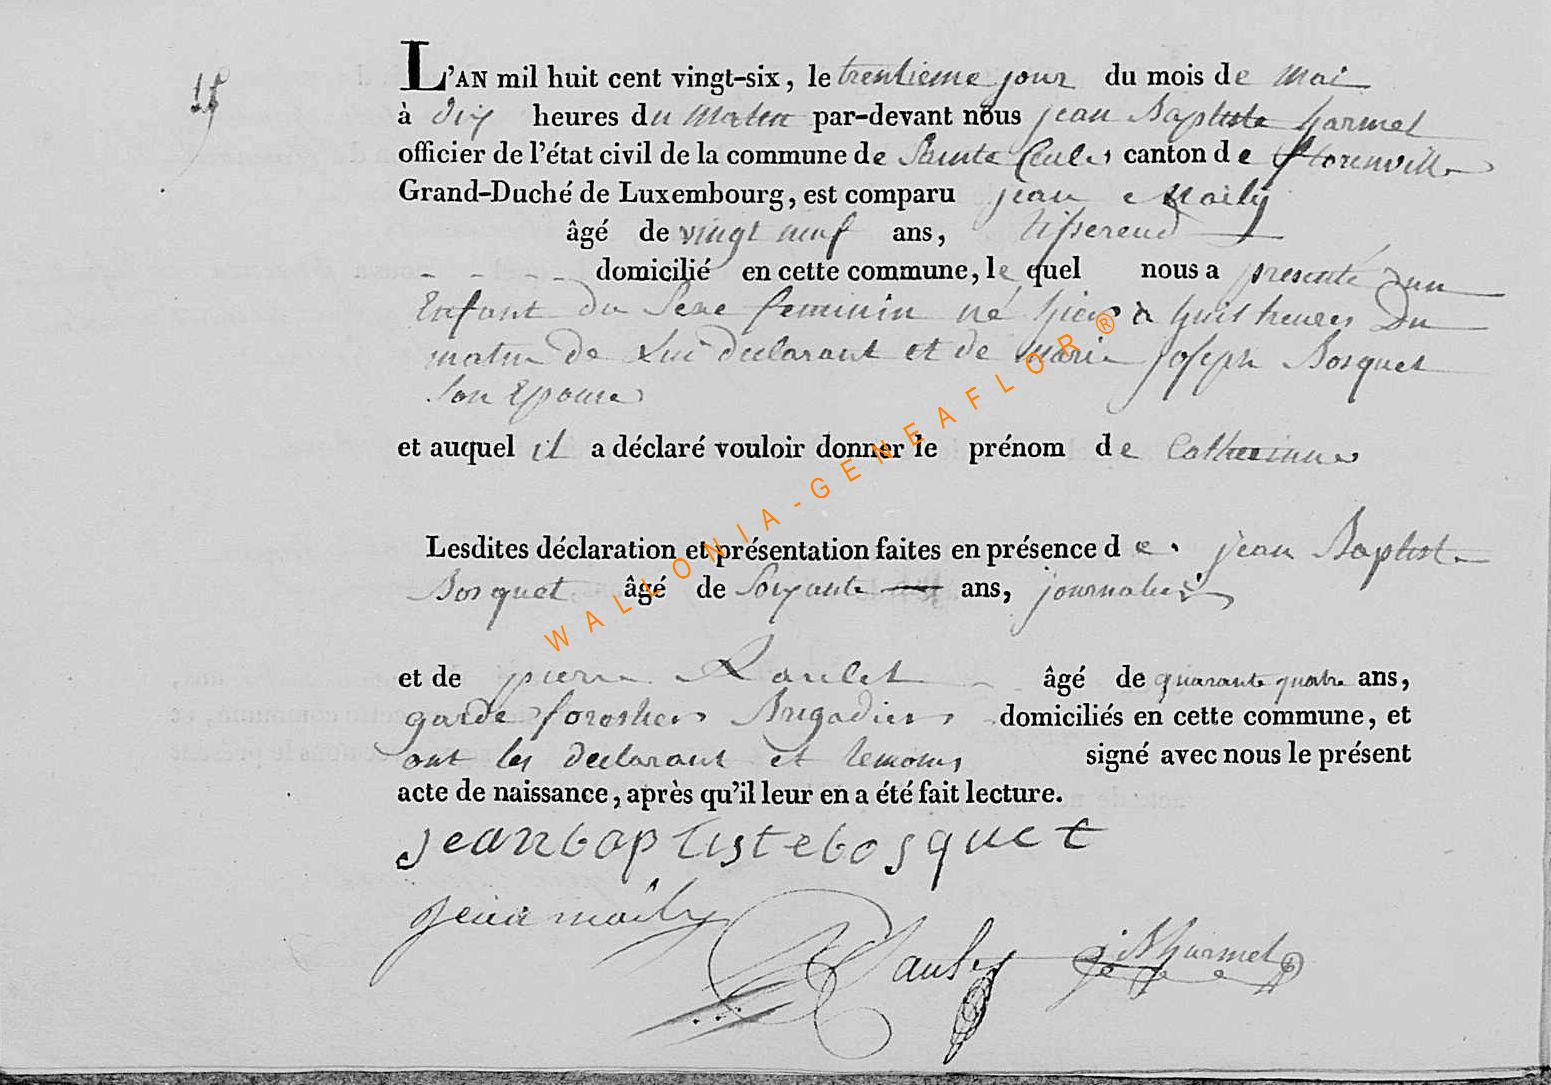 15
L'AN mil huit cent vingt-six, le trentieme jour du mois de Mai
à dix heures du Matin par-devant nous jean Baptiste harmel
officier de l'état civil de la commune de Sainte Cecile canton de florenville
Grand-Duché de Luxembourg, est comparu jean Maily
âgé de vingt neuf ans, tisserend
domicilié en cette commune, le quel nous a presenté un
Enfant du Sexe feminin né hier à huit heures Du
matin de Lui declarant et de Marie joseph Bosquet
Son Epouse
et auquel il a déclaré vouloir donner le prénom de Catherinne
Lesdites déclaration et présentation faites en présence de jean Baptiste
Bosquet âgé de Soixante ans, journalier
et de pierre Raulet âgé de quarante quatre ans,
garde forestier Brigadier domiciliés en cette commune, et
ont les declarant et temoins signé avec nous le présent
acte de naissance, après qu'il leur en a été fait lecture.
jeanbaptistebosquet
jean maily
Raulet jBharmel
WALLONIA-GENEAFLOR®